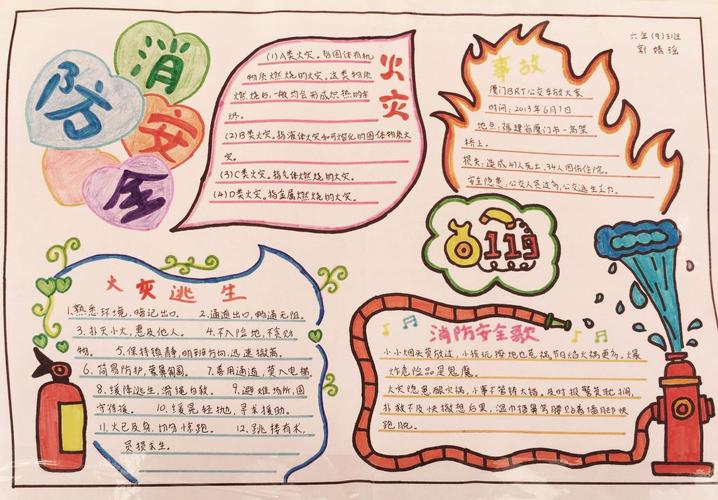 六年(9)班
郭婧瑶
消
防
安
全
火灾
(1)A类火灾。指固体有机
物质燃烧的火灾。这类物质
燃烧后一般均会形成炽热的余
烬。
(2)B类火灾。指液体火灾和可熔化的固体物质火
灾。
(3)C类火灾。指气体燃烧的火灾。
(4)D类火灾。指金属燃烧的火灾。
事故
厦门BRT公交车放火案
时间:2013年6月7日
地点:福建省厦门市一高架
桥上。
损失:造成47人死亡,34人因伤住院。
安全隐患:公交人员过多,公交逃生乏力。
119
火灾逃生
1.熟悉环境,暗记出口。 2.通道出口,畅通无阻。
3.扑灭小火,惠及他人。 4.不入险地,不贪财
物。 5.保持镇静,明辨方向,迅速撤离。
6.简易防护,蒙鼻匍匐。 7.善用通道,莫入电梯。
8.缓降逃生,滑绳自救。 9.避难场所,固
守待援。 10.缓晃轻抛,寻求援助。
11.火已及身,切勿惊跑。 12.跳楼有术,
虽损求生。
消防安全歌
小小烟头莫放过,小孩玩撩地也惹祸,节日焰火锅更多,爆
炸危险品是鬼魔。
火灾隐患酿火祸,小事不管铸大错。及时报警莫耽搁,
扑救不及快撤想后果,湿巾捂鼻弯腰贴着墙脚快
跑脱。